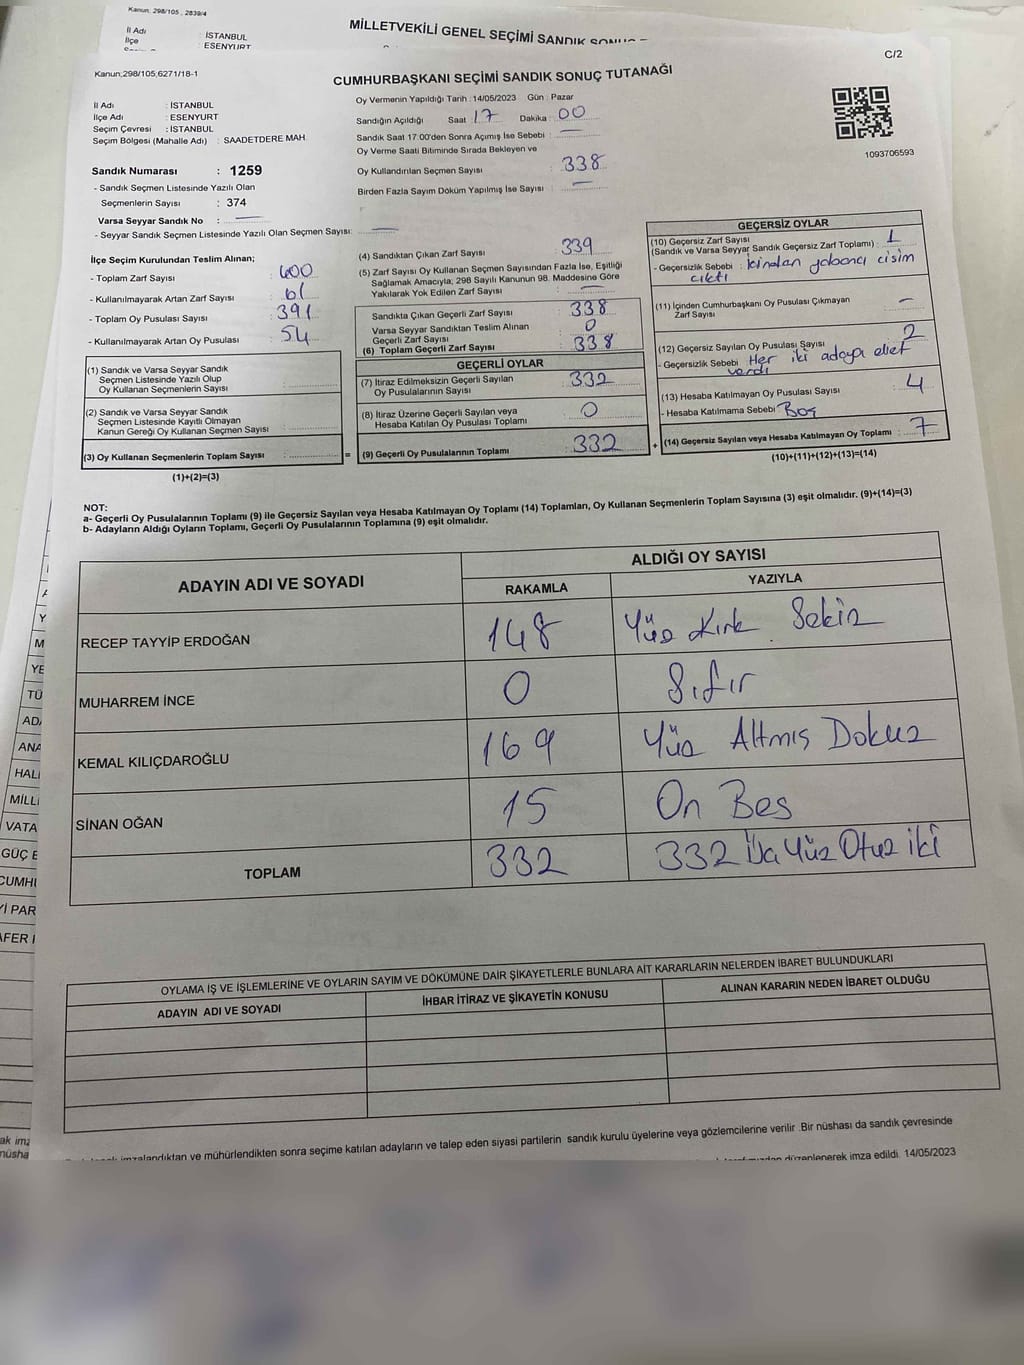 Kanun; 298/105 , 2839/4
MİLLETVEKİLİ GENEL SEÇİMİ SANDIK
İl Adı : İSTANBUL
İlçe : ESENYURT
C/2
Kanun;298/105;6271/18-1
CUMHURBAŞKANI SEÇİMİ SANDIK SONUÇ TUTANAĞI
İl Adı : İSTANBUL
İlçe Adı : ESENYURT
Seçim Çevresi : İSTANBUL
Seçim Bölgesi (Mahalle Adı) : SAADETDERE MAH.
Oy Vermenin Yapıldığı Tarih : 14/05/2023 Gün : Pazar
Sandığın Açıldığı Saat : 17 Dakika : 00
Sandık Saat 17:00'den Sonra Açımış İse Sebebi : —
Oy Verme Saati Bitiminde Sırada Bekleyen ve
Oy Kullandırılan Seçmen Sayısı : 338
Birden Fazla Sayım Döküm Yapılmış İse Sayısı : —
1093706593
Sandık Numarası : 1259
- Sandık Seçmen Listesinde Yazılı Olan
Seçmenlerin Sayısı : 374
Varsa Seyyar Sandık No : —
- Seyyar Sandık Seçmen Listesinde Yazılı Olan Seçmen Sayısı: —
İlçe Seçim Kurulundan Teslim Alınan;
- Toplam Zarf Sayısı : 400
- Kullanılmayarak Artan Zarf Sayısı : 61
- Toplam Oy Pusulası Sayısı : 391
- Kullanılmayarak Artan Oy Pusulası : 54
(1) Sandık ve Varsa Seyyar Sandık
Seçmen Listesinde Yazılı Olup
Oy Kullanan Seçmenlerin Sayısı :
(2) Sandık ve Varsa Seyyar Sandık
Seçmen Listesinde Kayıtlı Olmayan
Kanun Gereği Oy Kullanan Seçmen Sayısı :
(3) Oy Kullanan Seçmenlerin Toplam Sayısı : =
(1)+(2)=(3)
(4) Sandıktan Çıkan Zarf Sayısı : 339
(5) Zarf Sayısı Oy Kullanan Seçmen Sayısından Fazla İse, Eşitliği
Sağlamak Amacıyla; 298 Sayılı Kanunun 98. Maddesine Göre
Yakılarak Yok Edilen Zarf Sayısı : —
Sandıkta Çıkan Geçerli Zarf Sayısı : 338
Varsa Seyyar Sandıktan Teslim Alınan
Geçerli Zarf Sayısı : 0
(6) Toplam Geçerli Zarf Sayısı : 338
GEÇERLİ OYLAR
(7) İtiraz Edilmeksizin Geçerli Sayılan
Oy Pusulasının Sayısı : 332
(8) İtiraz Üzerine Geçerli Sayılan veya
Hesaba Katılan Oy Pusulası Toplamı : 0
(9) Geçerli Oy Pusulalarının Toplamı : 332 +
GEÇERSİZ OYLAR
(10) Geçersiz Zarf Sayısı
(Sandık ve Varsa Seyyar Sandık Geçersiz Zarf Toplamı) : 1
- Geçersizlik Sebebi : İcinden yabancı cisim
cıktı
(11) İçinden Cumhurbaşkanı Oy Pusulası Çıkmayan
Zarf Sayısı : —
(12) Geçersiz Sayılan Oy Pusulası Sayısı : 2
- Geçersizlik Sebebi : Her iki adaya eliet
verdı
(13) Hesaba Katılmayan Oy Pusulası Sayısı : 4
- Hesaba Katılmama Sebebi : Boş
(14) Geçersiz Sayılan veya Hesaba Katılmayan Oy Toplamı : 7
(10)+(11)+(12)+(13)=(14)
NOT:
a- Geçerli Oy Pusulalarının Toplamı (9) ile Geçersiz Sayılan veya Hesaba Katılmayan Oy Toplamı (14) Toplamları, Oy Kullanan Seçmenlerin Toplam Sayısına (3) eşit olmalıdır. (9)+(14)=(3)
b- Adayların Aldığı Oyların Toplamı, Geçerli Oy Pusulalarının Toplamına (9) eşit olmalıdır.
ADAYIN ADI VE SOYADI
ALDIĞI OY SAYISI
RAKAMLA YAZIYLA
RECEP TAYYİP ERDOĞAN 148 Yüz Kırk Sekiz
MUHARREM İNCE 0 Sıfır
KEMAL KILIÇDAROĞLU 169 Yüz Altmış Dokuz
SİNAN OĞAN 15 On Beş
TOPLAM 332 332 Üç Yüz Otuz iki
OYLAMA İŞ VE İŞLEMLERİNE VE OYLARIN SAYIM VE DÖKÜMÜNE DAİR ŞİKAYETLERLE BUNLARA AİT KARARLARIN NELERDEN İBARET BULUNDUKLARI
ADAYIN ADI VE SOYADI İHBAR İTİRAZ VE ŞİKAYETİN KONUSU ALINAN KARARIN NEDEN İBARET OLDUĞU
imzalandıktan ve mühürlendikten sonra seçime katılan adayların ve talep eden siyasi partilerin sandık kurulu üyelerine veya gözlemcilerine verilir .Bir nüshası da sandık çevresinde
düzenlenerek imza edildi. 14/05/2023
A
Y
M
YE
TÜ
ADA
ANA
HAL
MİLL
VATA
GÜÇ E
CUMH
İ PAR
AFER